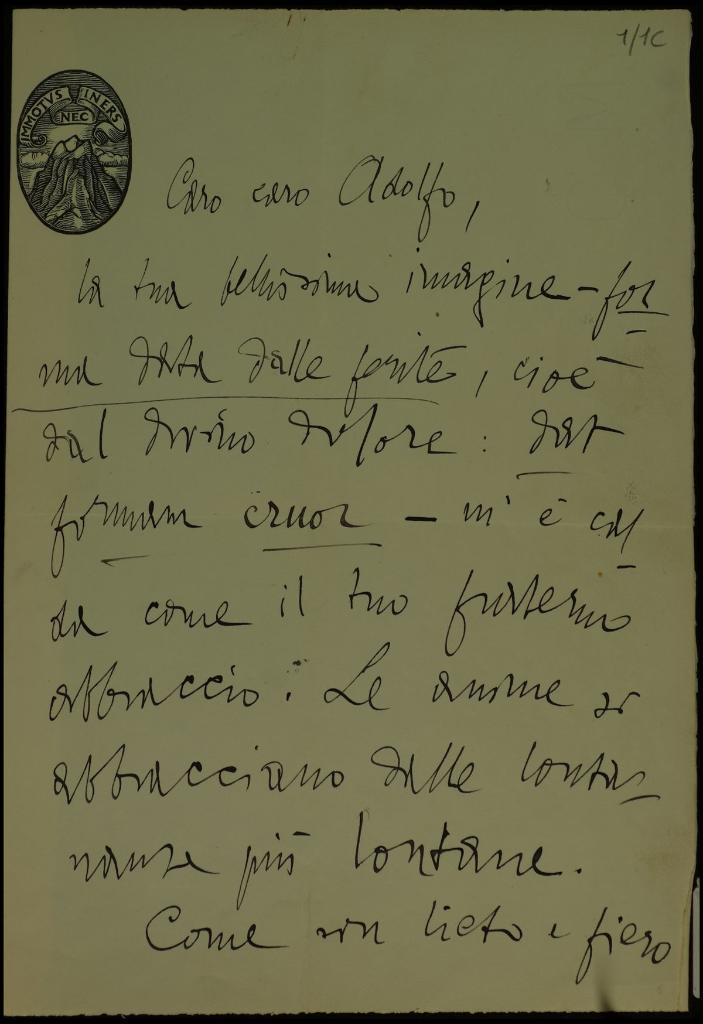 1/1C
IMMOTVS NEC INERS
Caro caro Adolfo,
la tua bellissima imagine – for
ma data dalle ferite, cioè
dal divino dolore: dat
formam cruor – m'è cal
da come il tuo fraterno
abbraccio. Le anime si
abbracciano dalle lonta-
nanze più lontane.
Come son lieto e fiero